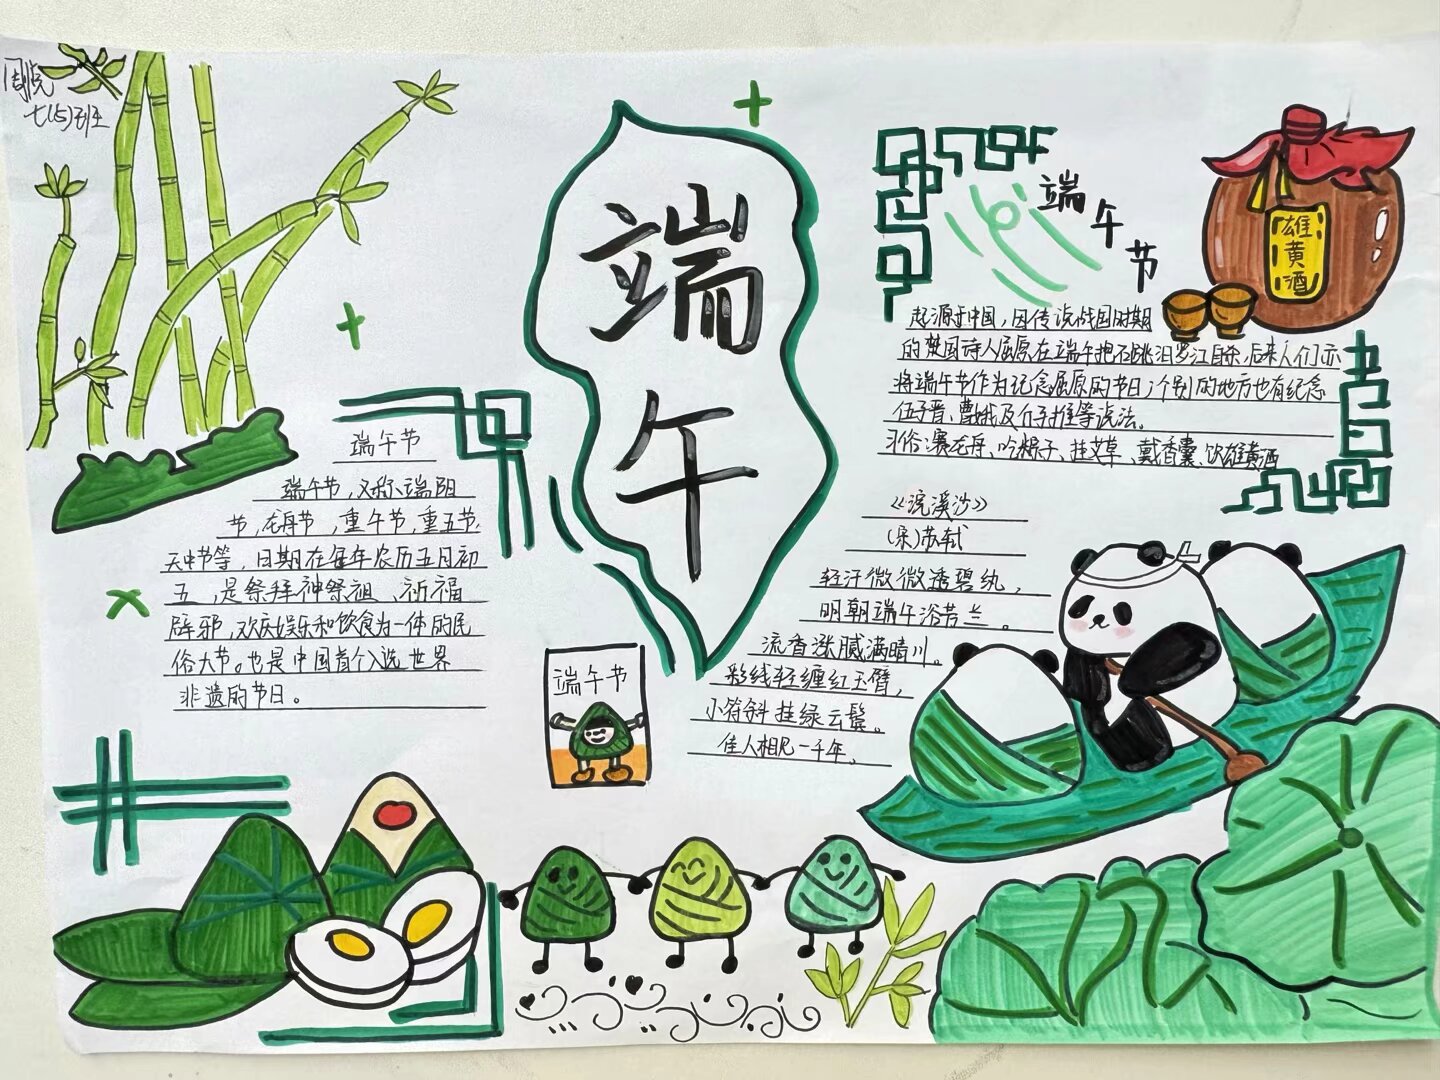 七(5)班
端午
端午节
端午节,又称端阳
节,龙舟节,重午节,重五节,
天中节等,日期在每年农历五月初
五,是祭拜神祭祖、祈福
辟邪,欢庆娱乐和饮食为一体的民
俗大节。也是中国首个入选世界
非遗的节日。
端午节
端午节
起源于中国,因传说战国时期
的楚国诗人屈原在端午抱石跳汨罗江自杀,后来人们亦
将端午节作为纪念屈原的节日,个别的地方也有纪念
伍子胥、曹娥及介子推等说法。
习俗:赛龙舟、吃粽子、挂艾草、戴香囊、饮雄黄酒
雄黄酒
《浣溪沙》
(宋)苏轼
轻汗微微透碧纨,
明朝端午浴芳兰。
流香涨腻满晴川。
彩线轻缠红玉臂,
小符斜挂绿云鬓。
佳人相见一千年。